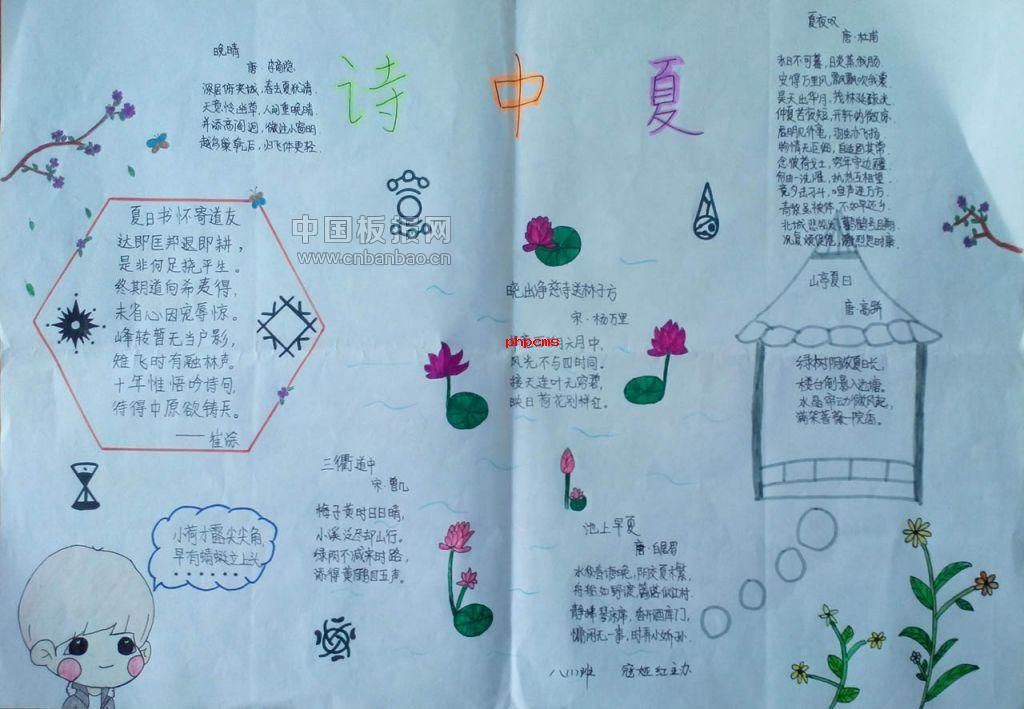 诗中夏
晚晴
唐·
深居俯夹城,春去夏犹清,
天意怜幽草,人间重晚晴。
并添高阁迥,微注小窗明,
越鸟巢乾后,归飞体更轻。
夏日书怀寄道友
达即匡邦退即耕,
是非何足挠平生。
终期道向希夷得,
未省心因宠辱惊。
峰转暂无当户影,
雉飞时有融林声。
十年惟悟吟诗句,
待得中原欲铸兵。
——崔涂
小荷才露尖尖角,
早有蜻蜓立上头
......
三衢道中
宋·曾几
梅子黄时日日晴,
小溪泛尽却山行。
绿阴不减来时路,
添得黄鹂四五声。
晓出净慈寺送林子方
宋·杨万里
六月中,
风光不与四时同。
接天连叶无穷碧,
映日荷花别样红。
池上早夏
唐·白居易
水积春塘晚,阴交夏木繁,
舟船如野渡,篱落似江村。
静拂琴床席,香开酒库门,
慵闲无一事,时弄小娇孙。
八(1)班 寇娅红主办
夏夜叹
唐·杜甫
永日不可暮,炎蒸我肠
安得万里风,飘飖吹我裳
昊天出华月,茂林延疏光
仲夏苦夜短,开轩纳微凉
虚明见纤毫,羽虫亦飞扬
物情无巨细,自适固其常
念彼荷戈士,穷年守边疆
何由一洗濯,执热互相望
竟夕击刁斗,喧声连万方
青紫虽被体,不如早还乡
北城悲笳发,鹳鹤号且翔
况复烦促倦,激烈思时康
山亭夏日
唐·高骈
绿树阴浓夏日长,
楼台倒影入池塘。
水晶帘动微风起,
满架蔷薇一院香。
中国板报网
www.cnbanbao.cn
phpcms